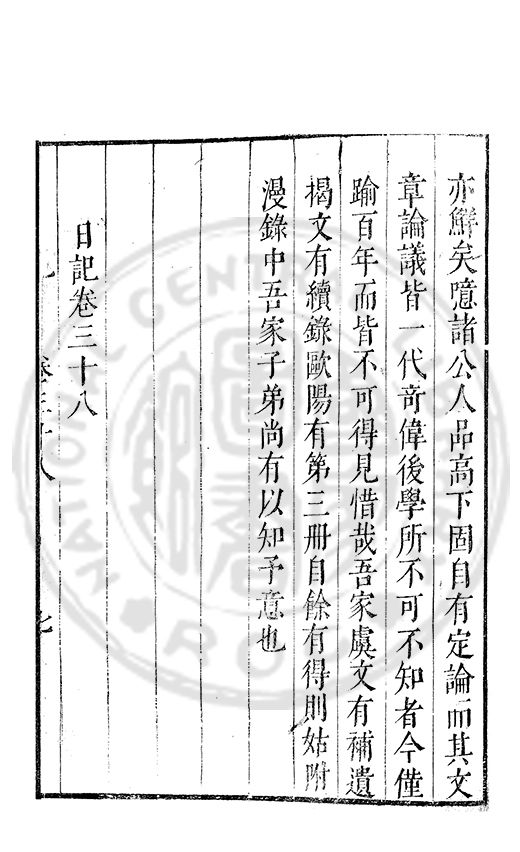 亦鮮矣噫諸公人品高下固自有定論而其文
章論議皆一代竒偉後學所不可不知者今僅
踰百年而皆不可得見惜哉吾家虞文有補遺
揭文有續錄歐陽有第三冊自餘有得則姑附
漫錄中吾家子弟尚有以知予意也
日記卷三十八
卷三十八